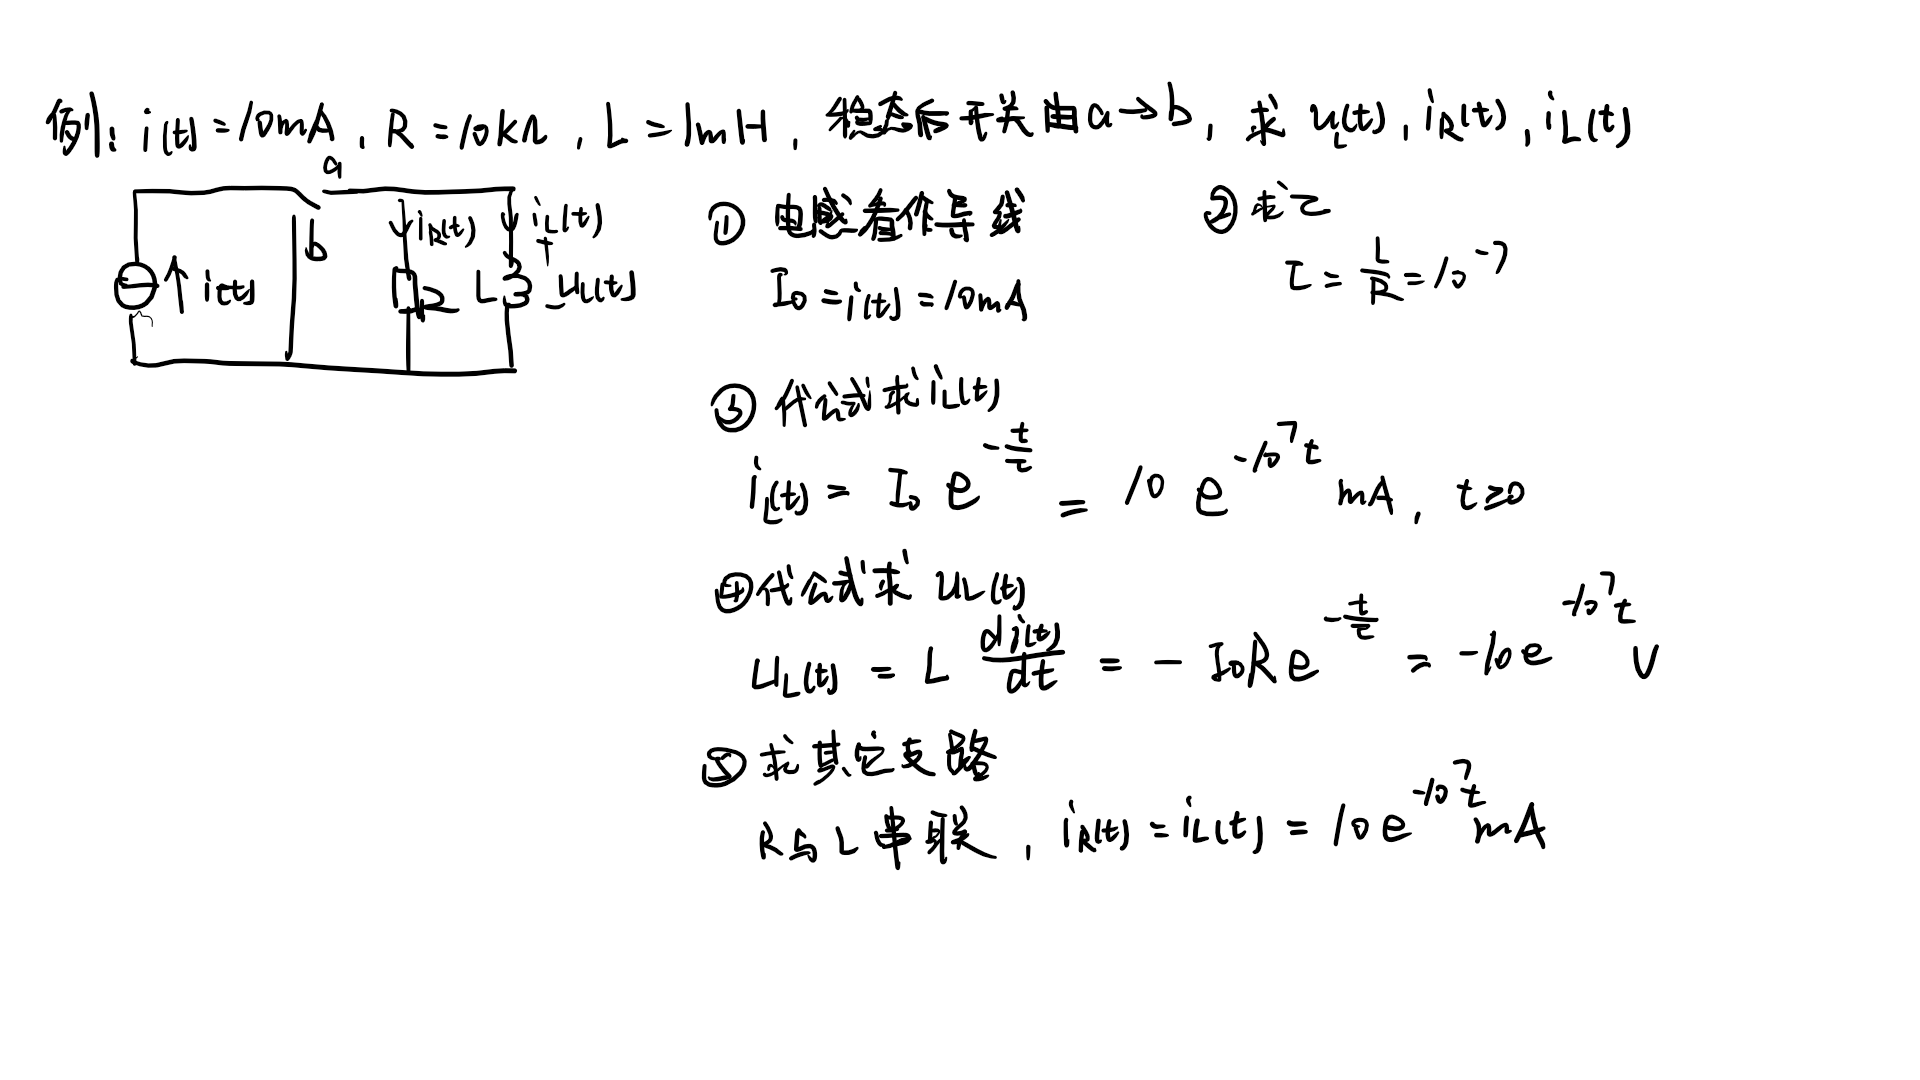 例: i(t) = 10mA, R = 10kΩ, L = 1mH, 稳态后开关由a→b, 求 u_L(t), i_R(t), i_L(t)
a
b
i(t)
i_R(t)
R
i_L(t)
L
+
- u_L(t)
① 电感看作导线
I₀ = i(t) = 10mA
② 求τ
τ = L/R = 10^-7
③ 代公式求 i_L(t)
i_L(t) = I₀ e^(-t/τ) = 10 e^(-10^7 t) mA, t≥0
④ 代公式求 u_L(t)
u_L(t) = L di(t)/dt = - I₀R e^(-t/τ) = -10e^(-10^7 t) V
⑤ 求其它支路
R与L串联, i_R(t) = i_L(t) = 10e^(-10^7 t) mA